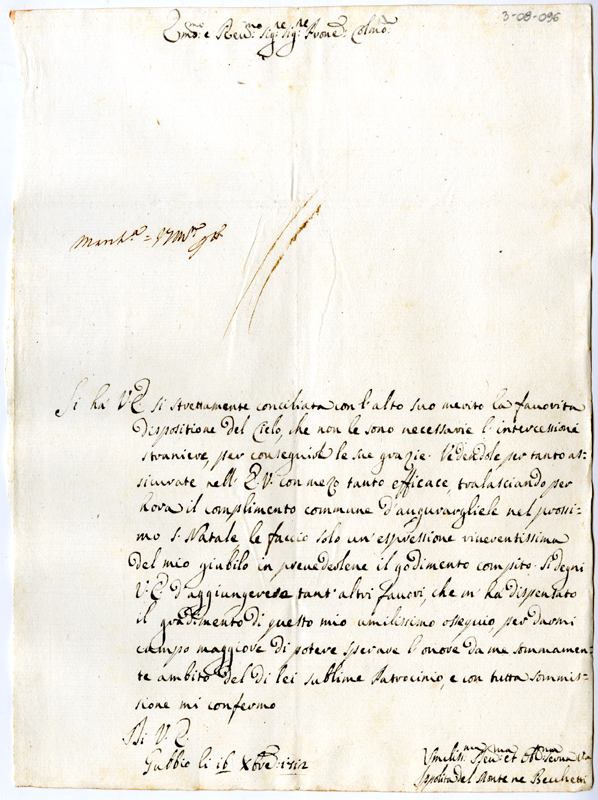 3-08-096
Em.mo e Reu.mo Sig.re Sig.re Prone Colmo.
Si ha V.E. si strettamente conciliata con l'alto suo merito la fauorita
dispositione del Cielo, che non le sono necessarie l'intercessioni
straniere, per conseguire le sue grazie. Vedendole per tanto as-
sicurate nell'E.V. con mezo tanto efficace, tralasciando per
hora il complimento commune d'augurargliele nel prossi-
mo S. Natale le faccio solo un'espressione riuerentissima
del mio giubilo in preuederlene il godimento compito. Si degni
V.E. d'aggiungere a tant'altri fauori, che m'ha dispensato
il gradimento di questo mio umilissimo osequio, per darmi
campo maggiore di potere sperare l'onore da me sommamen-
te ambito del di lei sublime Patrocinio, e con tutta sommis-
sione mi confermo
Di V.E.
Gubbio li 16 Xbre 1712
Vmiliss.ma Deu.ma et Obl.ma Serua Vra
Ippolita del Monte ne Becchetti